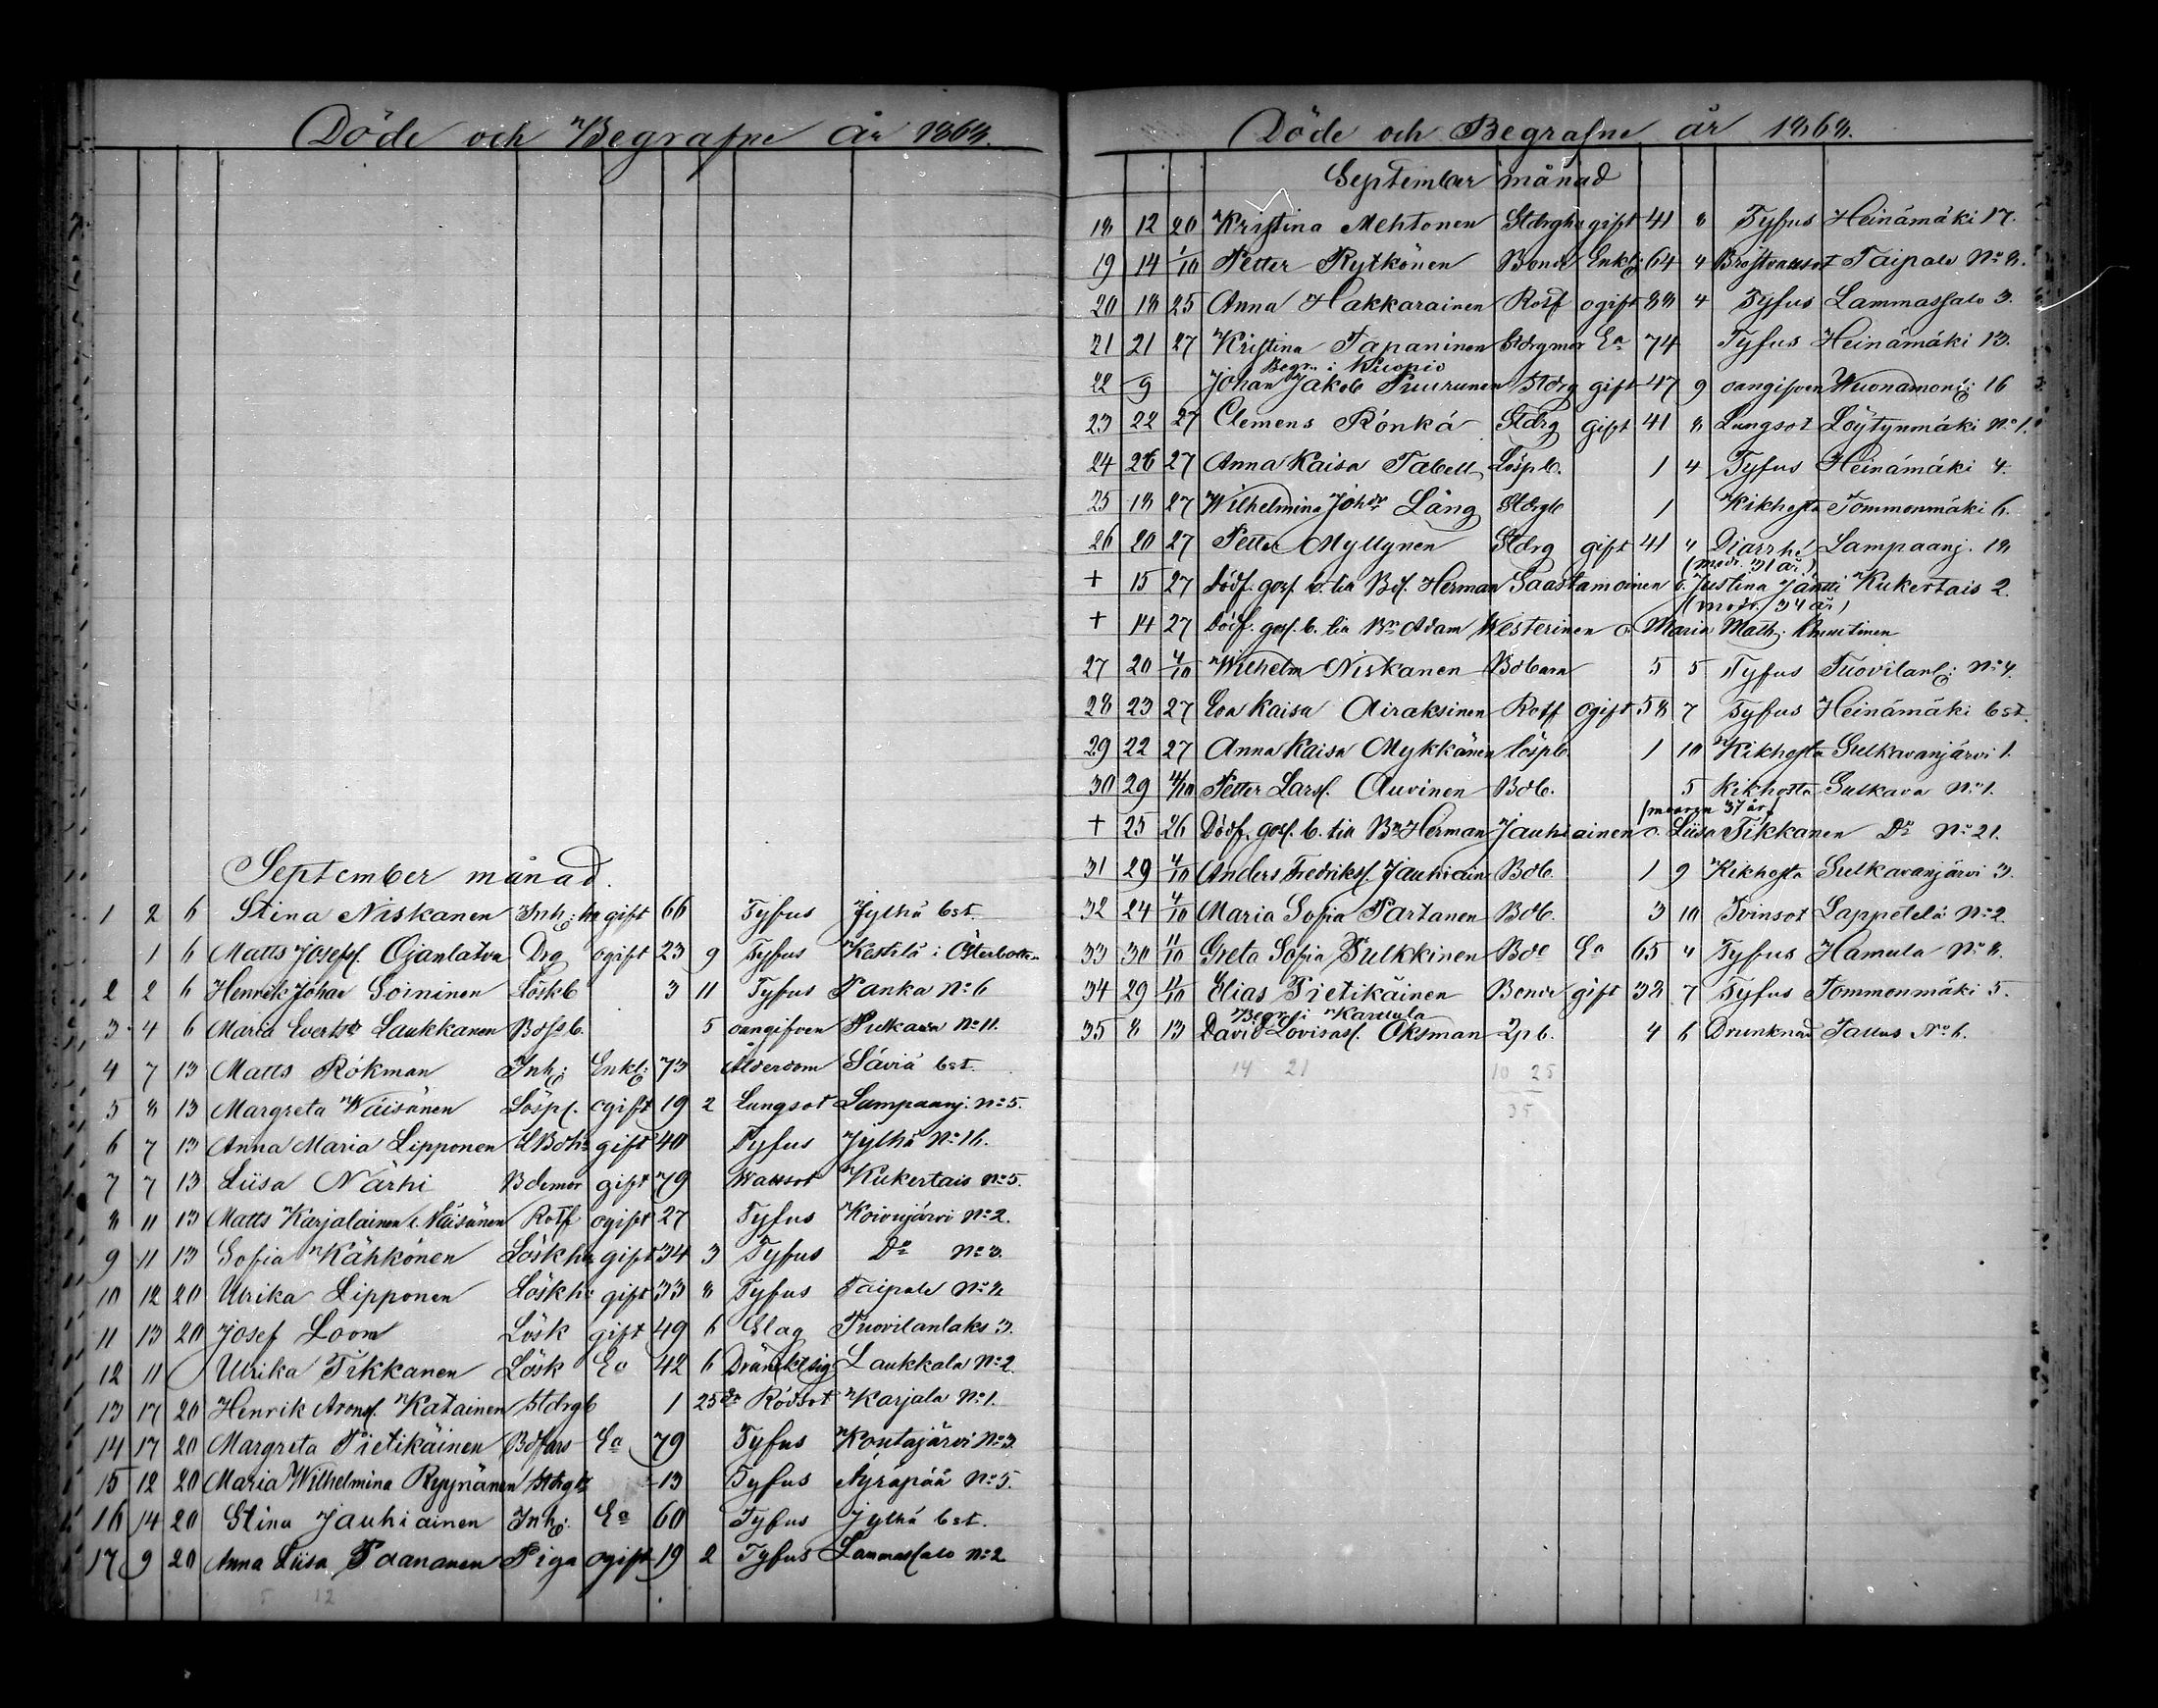 Döde och Begrafne år 1868.
September månad.
1 2 6 Stina Niskanen Inh: hu gift 66 Tyfus Jylhä bst.
1 6 Matts Josefss. Ojanlatva Drg ogift 23 9 Tyfus Kestilä i Österbotten
2 2 6 Henrik Johan Soininen Löskb 3 11 Tyfus Panka No 6
3 4 6 Maria Evertsdr Laukkanen Bdssb. 5 oangifven No 11.
4 7 13 Matts Rökman Inh: Enkl: 73 Ålderdom Säviä bst.
5 8 13 Margreta Wäisänen Löspf. ogift 19 2 Lungsot Lampaanj. No 5.
6 7 13 Anna Maria Lipponen gift 40 Tyfus Jylhä No 16.
7 7 13 Liisa Närhi Bdemor gift 79 Wattsot Kukertais No 5.
8 11 13 Matts Karjalainen l. Näisänen Rotf ogift 27 Tyfus Koivujärvi No 2.
9 11 13 Sofia Kähkönen Löskhu gift 34 3 Tyfus Do No 3.
10 12 20 Ulrika Lipponen Löskhu gift 33 8 Tyfus Taipale No 8
11 13 20 Josef Loom Lösk gift 49 6 Slag Tuovilanlaks 3.
12 11 Ulrika Tikkanen Lösk Ea 42 6 Dränkt sig Laukkala No 2.
13 17 20 Henrik Aronss. Katainen Stdrgb 1 25 dr Rödsot Karjala No 1.
14 17 20 Margreta Pietikäinen Ea 79 Tyfus Koutajärvi No 3.
15 12 20 Maria Wilhelmina Ryynänen Stdrgb 13 Tyfus Äyräpää No 5.
16 14 20 Stina Jauhiainen Inh: Ea 60 Tyfus Jylhä bst.
17 9 20 Anna Liisa Paananen Piga ogift 19 2 Tyfus Lammassalo No 2
5 12
Döde och Begrafne år 1868.
September månad
18 12 20 Kristina Mehtonen Stdrghu gift 41 8 Tyfus Heinämäki 17.
19 14 1/10 Petter Rytkönen Bonde Enkl: 64 4 Bröstvattsot Taipale No 8.
20 18 25 Anna Hakkarainen Rotf ogift 88 4 Tyfus Lammassalo 3.
21 21 27 Kristina Tapaninen Stdrgmor Ea 74 Tyfus Heinämäki 13.
Begr. i Kuopio
22 9 Johan Jakob Puurunen Stdrg gift 47 9 oangifven Wuonamonl: 16
23 22 27 Clemens Rönkä Stdrg gift 41 8 Lungsot Löytynmäki No 1.
24 26 27 Anna Kaisa Tabell Löspb. 1 4 Tyfus Heinämäki 4.
25 18 27 Wilhelmina Johdr Lång Stdrgb 1 Kikhosta Tommonmäki 6.
26 20 27 Petter Myllynen Stdrg gift 41 4 Diarrhé Lampaanj. 18
(modr. 31 år)
+ 15 27 Dödf. gosf. b. till Bds. Herman Saastamoinen o. Justina Jäntti Kukertais 2.
(modr. 34 år)
+ 14 27 Dödf. gosf. b. till Bn Adam Westerinen o. Maria Math:
27 20 4/10 Wilhelm Niskanen Bdbarn 5 5 Tyfus Tuovilanl: No 4.
28 23 27 Eva Kaisa Airaksinen Rotf Ogift 58 7 Tyfus Heinämäki bst.
29 22 27 Anna Kaisa Mykkänen löspb 1 10 Kikhosta Sulkavanjärvi 1.
30 29 4/10 Petter Larss. Auvinen Bdb. 5 Kikhosta Sulkava No 1.
(modren 37 år)
+ 25 26 Dödf. gosf. b. till Bn Herman Jauhiainen o. Liisa Tikkanen Do No 21.
31 29 4/10 Anders Fredrikss. Jauhiain Bdb. 1 9 Kikhosta Sulkavanjärvi 3.
32 24 4/10 Maria Sofia Partanen Bdb. 3 10 Tvinsot Lappetelä No 2.
33 30 11/10 Greta Sofia Pulkkinen Bde Ea 65 4 Tyfus Hamula No 8.
34 29 11/10 Elias Pietikäinen Bonde gift 32 7 Tyfus Tommonmäki 5.
Begr. i Karttula
35 8 13 David Lovisass. Oksman Lpb. 4 6 Drunknad Tallus No 6.
14 21 10 25
35